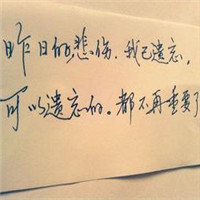 昨日的悲伤，我已遗忘，
可以遗忘的。都不再重要了